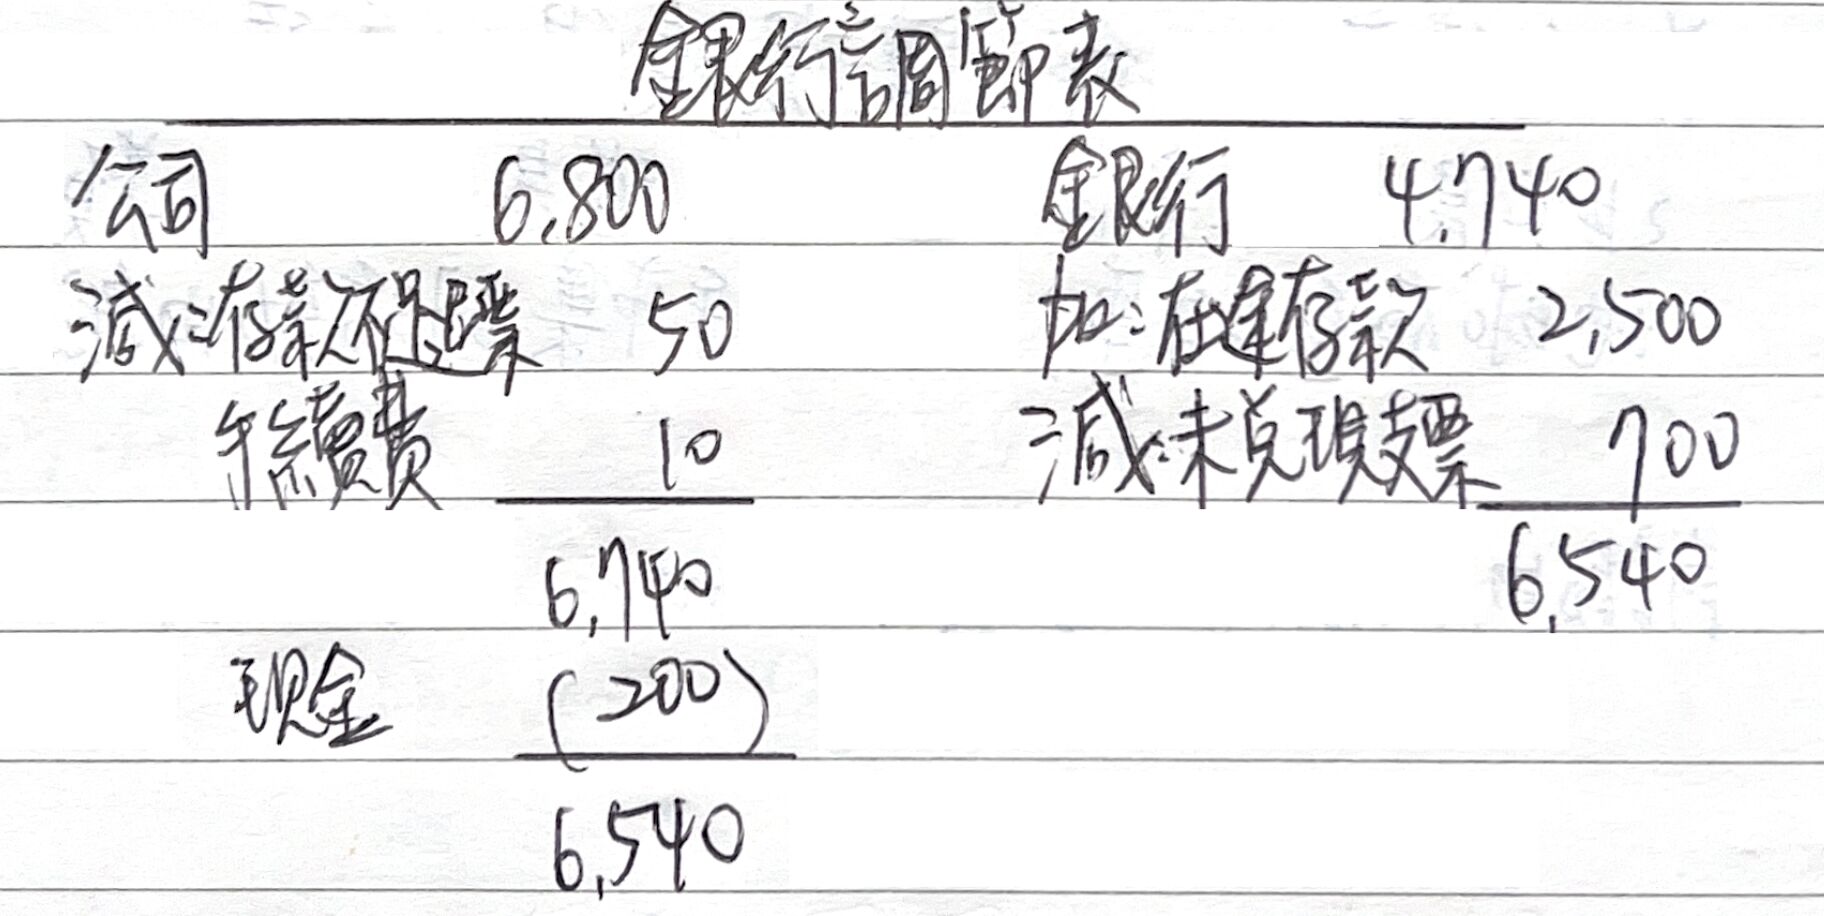 銀行調節表
公司 6,800 銀行 4,740
減:存款不足退票 50 加:在途存款 2,500
手續費 10 減:未兌現支票 700
6,740 6,540
現金 (200)
6,540